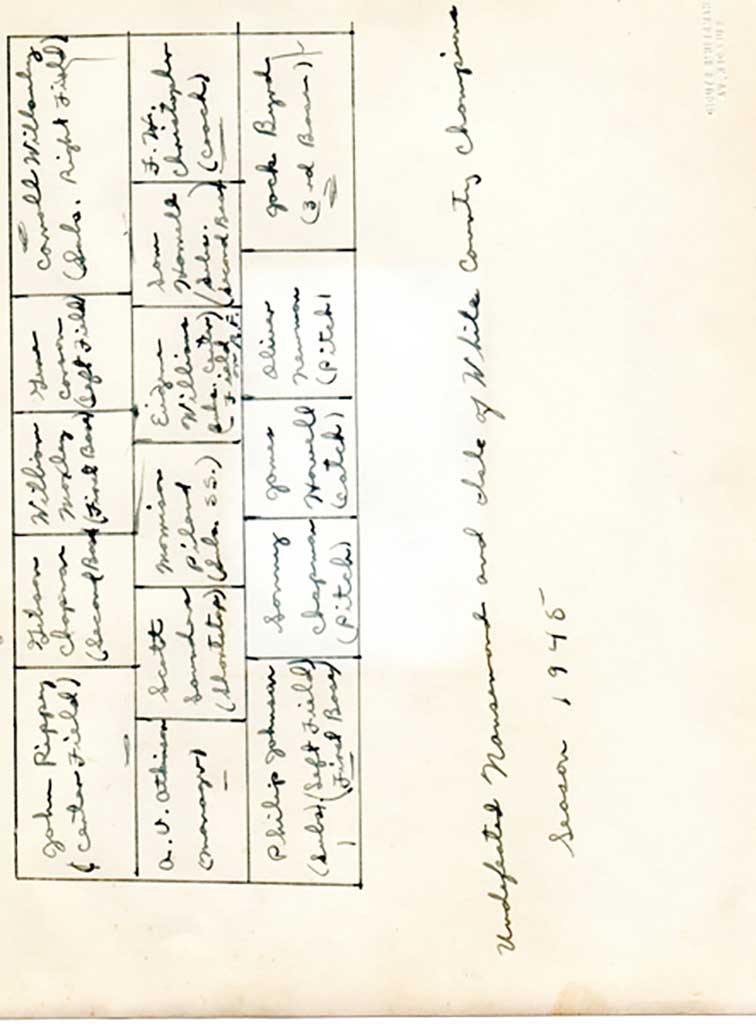 John Rippey
(Center Field)
Gibson
Chapman
(Second Base)
William
Mosley
(First Base)
Gene
(Left Field)
Carroll Willoughby
(Subs. Right Field)
A. V. Atkinson
(Manager)
Scott
Saunders
(Shortstop)
Morrison
Piland
(Subs. SS.)
Eugene
Williams
(Subs. Center
Field
or R.F.)
Sam
Howell
(Subs.
Second Base)
F. W.
Christopher
(Coach)
Philip Johnson
(Subs) (Left Field)
(First Base)
Sonny
Chapman
(Pitch)
James
Howell
(Catch)
Oliver
Newman
(Pitch)
Jack Byrd
(3rd Base)
Undefeated Nansemond and Isle of White County Champions
Season 1945